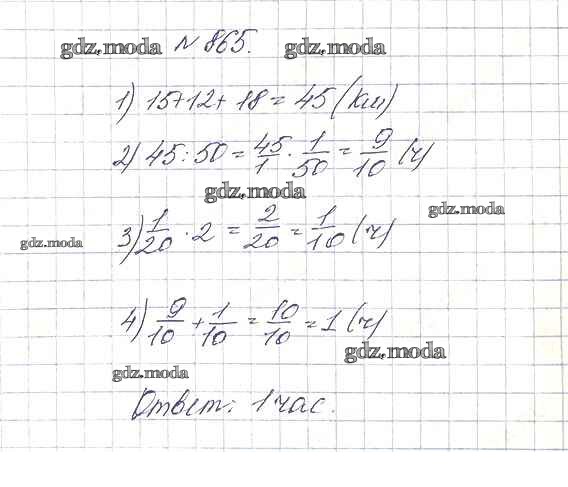 gdz.moda № 865. gdz.moda
1) 15+12+18=45 (км)
2) 45:50 = 45/1 · 1/50 = 9/10 (ч)
gdz.moda
gdz.moda
gdz.moda
3) 1/20 · 2 = 2/20 = 1/10 (ч)
4) 9/10 + 1/10 = 10/10 = 1 (ч)
gdz.moda
gdz.moda
Ответ: 1 час.